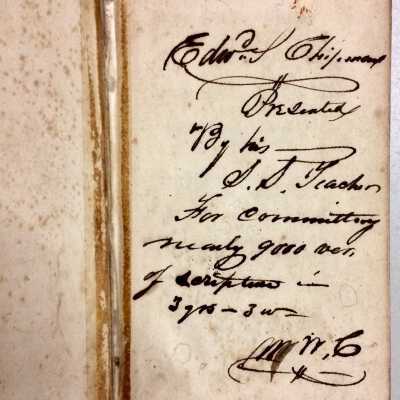 Edwd. S Chipman
Presented
By his
S. S. Teacher
For committing
nearly 9000 ver.
of scripture in
3 yrs - 3 w
W. C